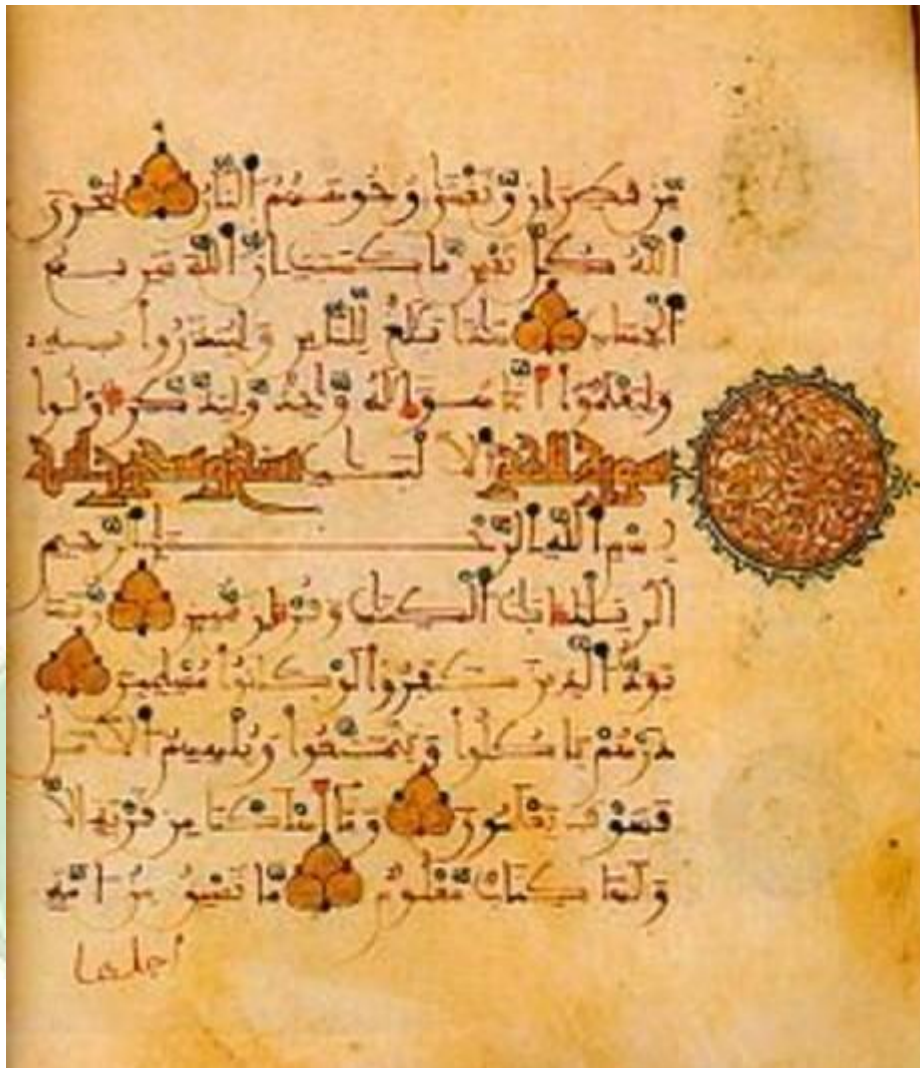 من قطران وتغشى وجوههم النار ليجزي
الله كل نفس ما كسبت إن الله سريع
الحساب هذا بلاغ للناس ولينذروا به
وليعلموا أنما هو إله واحد وليذكر أولوا
سورة الحجر الالباب
بسم الله الرحمن الرحيم
الر تلك ءايات الكتاب وقرءان مبين ربما
يود الذين كفروا لو كانوا مسلمين
ذرهم ياكلوا ويتمتعوا ويلههم الأمل
فسوف يعلمون وما أهلكنا من قرية إلا
ولها كتاب معلوم ما تسبق من أمة
أجلها